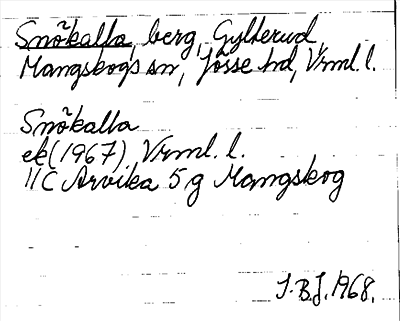 Snökalla, berg, Gylterud
Mangskogs sn, Jösse hd, Vrml. l.
Snökalla
ek (1967), Vrml. l.
11C Arvika 5 g Mangskog
S.B.J. 1968.